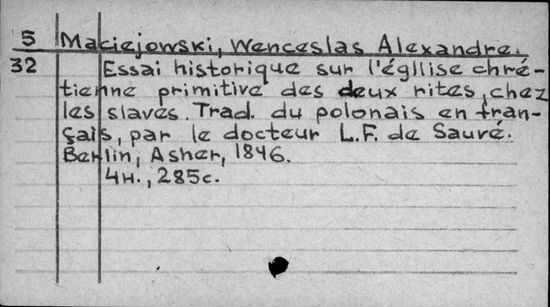 5 Maciejowski, Wenceslas Alexandre.
32 Essai historique sur l'égllise chré-
tienne primitive des deux rites, chez
les slaves. Trad. du polonais en fran-
çais, par le docteur L.F. de Sauvé.
Berlin, Asher, 1846.
4н., 285с.